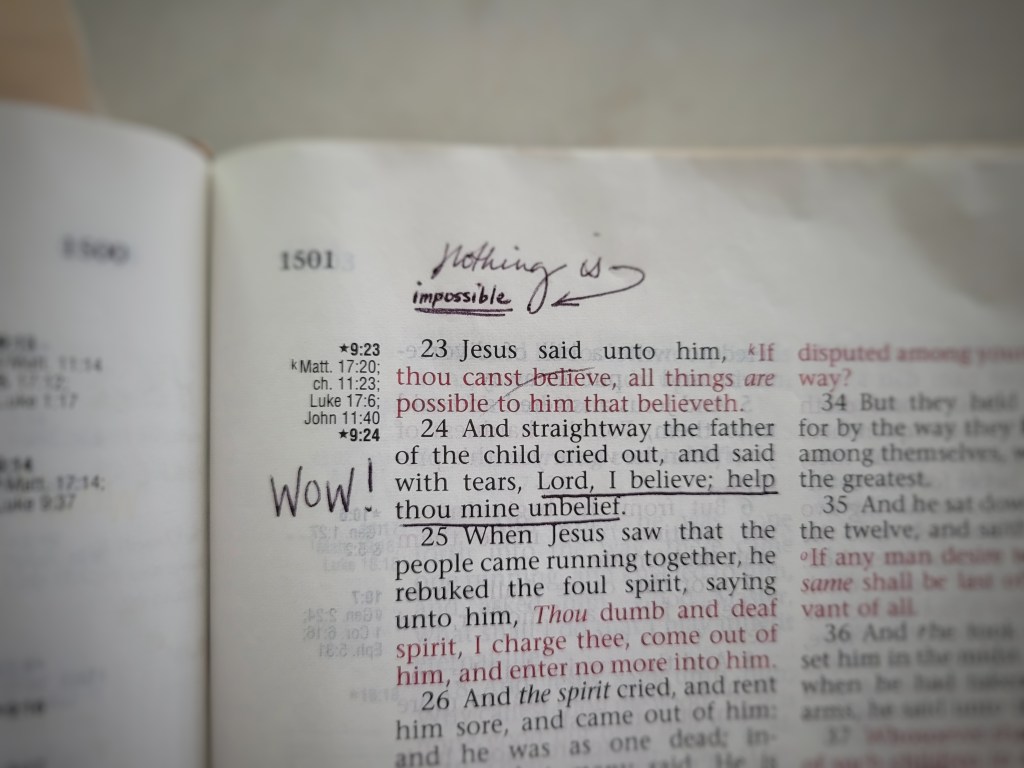 1500
1501
Nothing is
impossible
★9:23
kMatt. 17:20;
ch. 11:23;
Luke 17:6;
John 11:40
★9:24
WOW!
23 Jesus said unto him, kIf
thou canst believe, all things are
possible to him that believeth.
24 And straightway the father
of the child cried out, and said
with tears, Lord, I believe; help
thou mine unbelief.
25 When Jesus saw that the
people came running together, he
rebuked the foul spirit, saying
unto him, Thou dumb and deaf
spirit, I charge thee, come out of
him, and enter no more into him.
26 And the spirit cried, and rent
him sore, and came out of him:
and he was as one dead; in-
many said, He is
disputed among
way?
34 But they held
for by the way they
among themselves,
the greatest.
35 And he sat down
the twelve, and
oIf any man desire
same shall be last of
vant of all.
36 And
set him in the
when he had
arms, he said
37